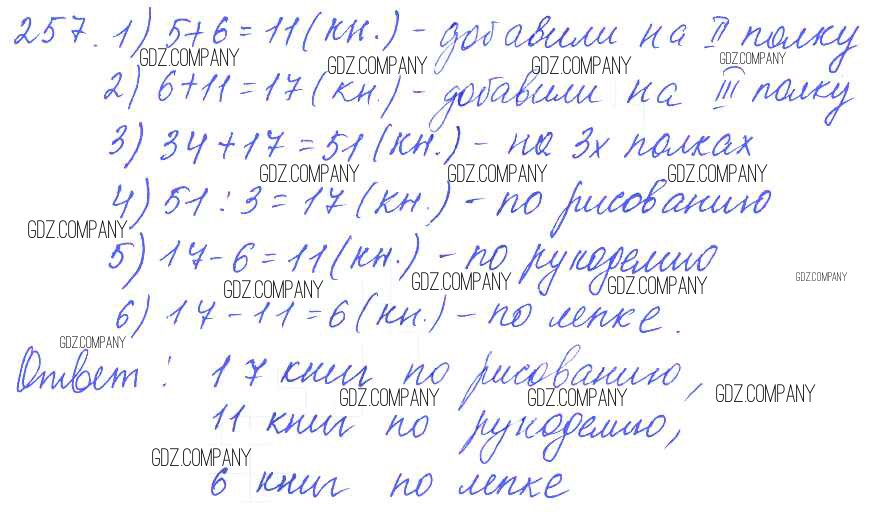 257. 1) 5+6=11(кн.) - добавили на II полку
GDZ.COMPANY GDZ.COMPANY GDZ.COMPANY GDZ.COMPANY
2) 6+11=17(кн.) - добавили на III полку
3) 34+17=51(кн.) - на 3х полках
GDZ.COMPANY GDZ.COMPANY GDZ.COMPANY
4) 51:3=17(кн.) - по рисованию
GDZ.COMPANY
5) 17-6=11(кн.) - по рукоделию
GDZ.COMPANY GDZ.COMPANY GDZ.COMPANY GDZ.COMPANY
6) 17-11=6(кн.) - по лепке.
GDZ.COMPANY
Ответ: 17 книг по рисованию,
GDZ.COMPANY GDZ.COMPANY GDZ.COMPANY
11 книг по рукоделию,
GDZ.COMPANY
6 книг по лепке